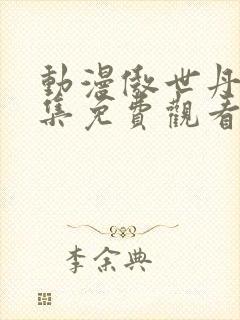 動漫傲世丹
集免費觀看
李余典